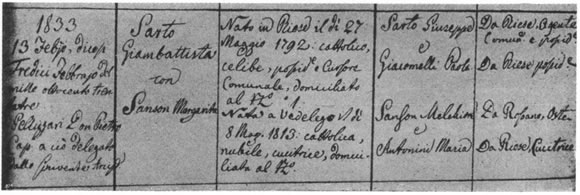 1833
13 Febjo, dicesi
Tredici Febbrajo del
mille ottocento trenta
tre
Pellizzari Don Pietro
Cap. a ciò delegato
dallo
Sarto
Giambattista
con
Sanson Margarita
Nato in Riese il dì 27
Maggio 1792: cattolico,
celibe, possid.e Cursore
Comunale, domiciliato
al N.o 1.
Nata a Vedelago il dì
8 Mag. 1813: cattolica,
nubile, cucitrice, domici-
liata al N.o
Sarto Giuseppe
e
Giacomelli Paola
Sanson Melchior
e
Antonini Maria
Da Riese,
Comun.e e possid.e
Da Riese possid.e
Da Rossano, Oste
e
Da Riese, Cucitrice